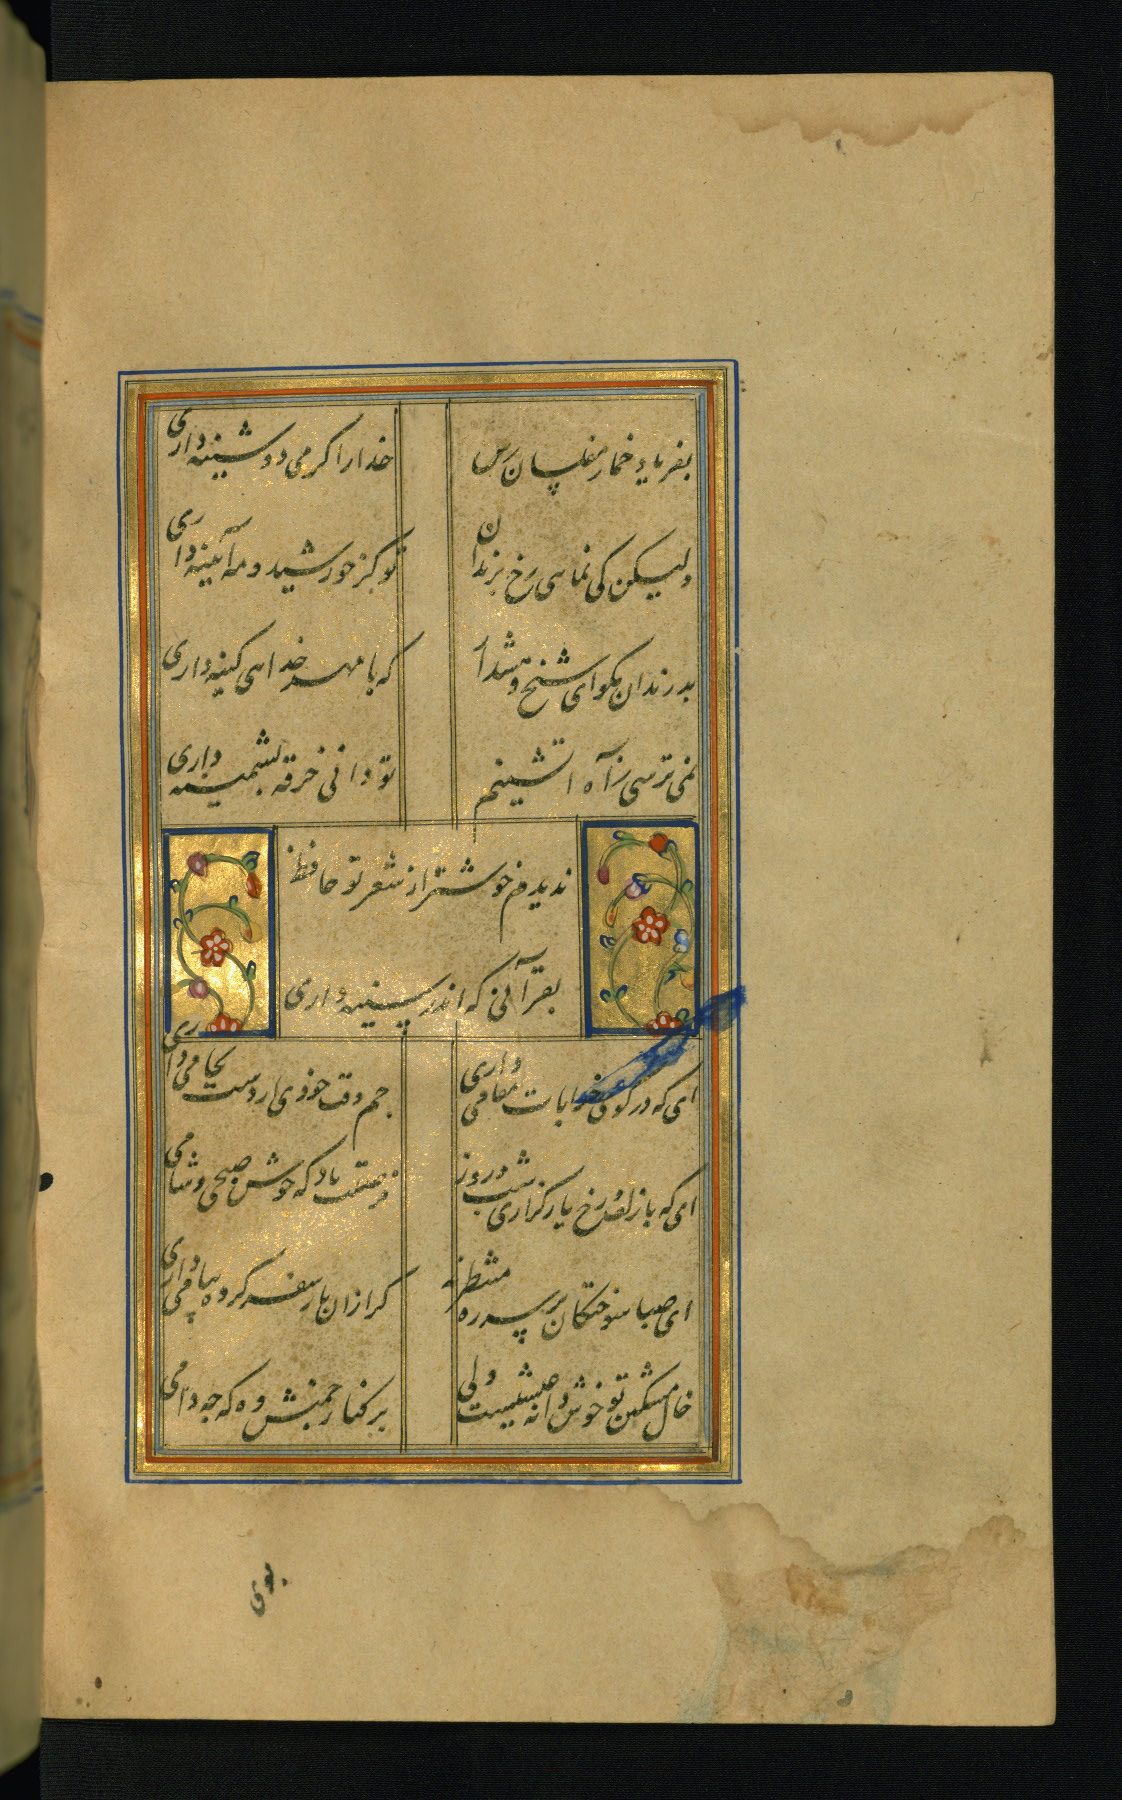 بفریاد خمار مفلسان رس
خدا را گر می دوشینه داری
ولیکن کی نمایی رخ برندان
تو کز خورشید و مه آیینه داری
بد رندان مگو ای شیخ و هشدار
که با مهر خدایی کینه داری
نمی ترسی ز آه آتشینم
تو دانی خرقه پشمینه داری
ندیدم خوشتر از شعر تو حافظ
بقرآنی که اندر سینه داری
ای که در کوی خرابات مقامی داری
جم وقت خودی ار دست بجامی داری
ای که با زلف و رخ یار گزاری شب و روز
فرصتت باد که خوش صبحی و شامی
ای صبا سوختگان بر سر ره منتظرند
گر از آن یار سفر کرده پیامی داری
خال مشکین تو خوش دانه عیشیست ولی
بر کنار چمنش وه که چه دامی
بوی